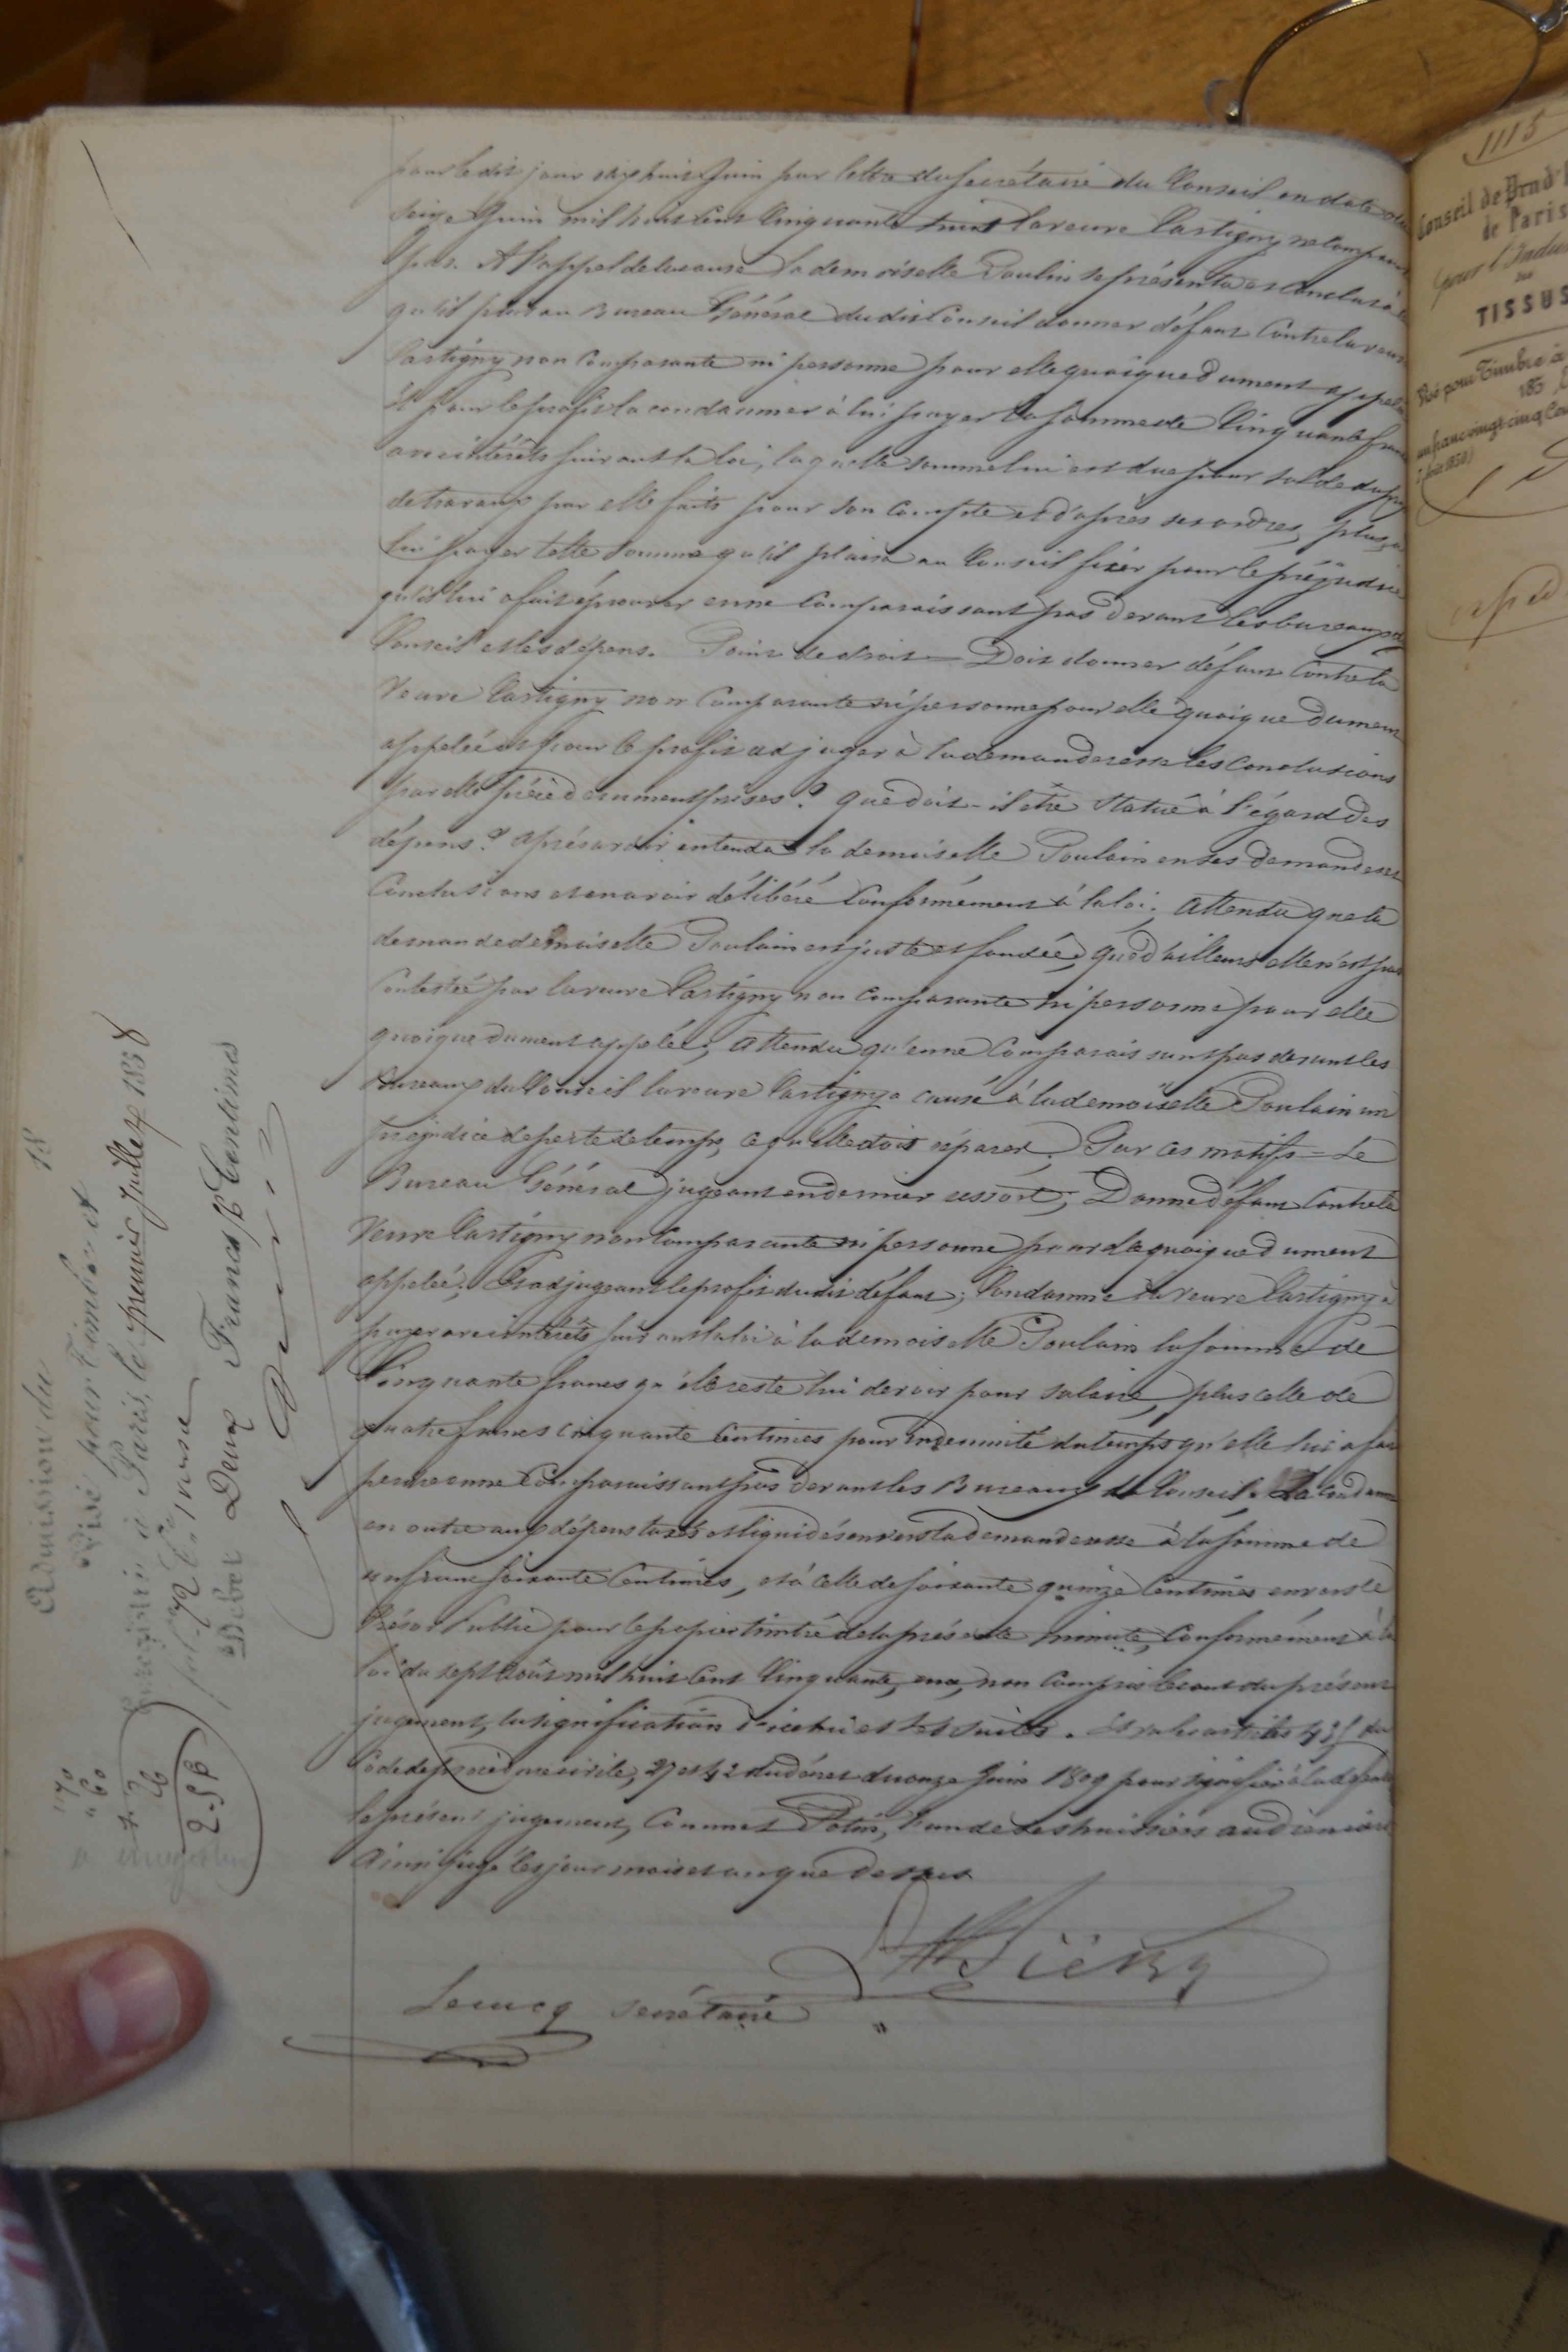 pour le dit jour dix huit Juin par lettre du secrétaire du Conseil en date du
seize Juin mil huit cent cinquante huit la veuve Castigny ne comparut
pas. A l'appel de la cause la demoiselle Poulain se présenta et conclut à ce
qu'il plut au Bureau Général dudit Conseil donner défaut contre la veuve
Castigny non comparante ni personne pour elle quoique dument appelée
Et pour le profit la condamner à lui payer la somme de Cinquante francs
avec intérêts suivant la loi, laquelle somme lui est due pour solde du prix
de travaux par elle faits pour son compte et d'après ses ordres, plus, à
lui payer telle somme qu'il plaira au Conseil fixer pour le préjudice
qu'il lui a fait éprouver en ne comparaissant pas devant les bureaux du
Conseil et les dépens. Point de droit = Doit donner défaut contre la
Veuve Castigny non comparante ni personne pour elle quoique dument
appelée et pour le profit adjuger à la demanderesse les conclusions
par elle précédemment prises? que doit-il être statué à l'égard des
dépens? après avoir entendu la demoiselle Poulain en ses demandes et
Conclusions et en avoir délibéré conformément à la loi; attendu que la
demande de demoiselle Poulain est juste et fondée, que d'ailleurs elle n'est pas
contestée par la veuve Castigny non comparante ni personne pour elle
quoique dument appelée; attendu qu'en ne comparaissant pas devant les
Bureaux du Conseil la veuve Castigny a causé à la demoiselle Poulain un
préjudice de perte de temps, ce qu'elle doit réparer. Par ces motifs = Le
Bureau Général jugeant en dernier ressort; Donne défaut contre la
Veuve Castigny non comparante ni personne pour elle quoique dument
appelée; Et adjugeant le profit dudit défaut; Condamne la veuve Castigny à
payer avec intérêts suivant la loi à la demoiselle Poulain la somme de
Cinquante francs qu'elle reste lui devoir pour salaire, plus celle de
quatre francs cinquante centimes pour indemnité du temps qu'elle lui a fait
perdre en ne comparaissant pas devant les Bureaux du Conseil. La condamne
en outre aux dépens taxés et liquidés envers la demanderesse à la somme de
un franc soixante centimes, et à celle de soixante quinze centimes envers le
Trésor Public pour le papier timbré de la présente minute, conformément à la
loi du sept Août mil huit cent cinquante, non compris le cout du présent
jugement, la signification d'icelui et ses suites. Et vu les articles 435 du
Code de procédure civile, 27 et 42 du décret du onze Juin 1809 pour signifier à la défenderesse
le présent jugement, commet Potin, l'un de ses huissiers audienciers
Ainsi jugé les jour mois et an que dessus
Lecucq secrétaire
Admission du 18
Visé pour Timbre et
Enregistré à Paris, le premier Juillet 1858
Debet Deux Francs Centimes
1115
Conseil de Prud'
de Paris
pour l'Indus
TISSUS
Visé pour Timbre à
185
un franc vingt cinq Cen